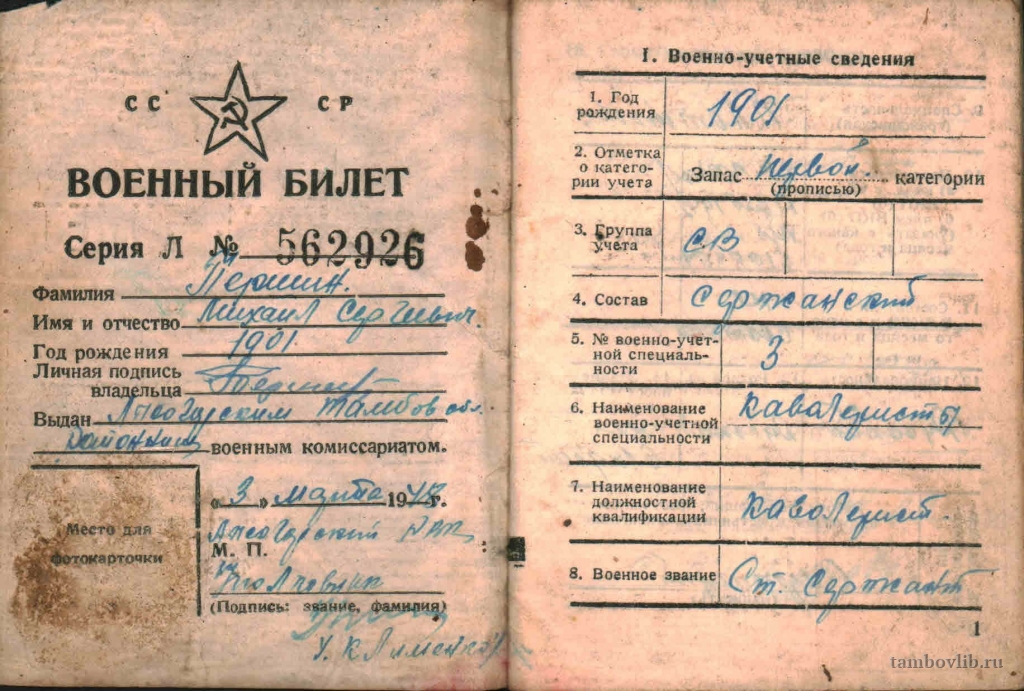 СС СР
ВОЕННЫЙ БИЛЕТ
Серия Л № 562926
Фамилия Першин.
Имя и отчество Михаил Сергеевич.
Год рождения 1901
Личная подпись
владельца
Выдан Лысогорским Тамбов обл.
районным военным комиссариатом.
Место для
фотокарточки
«3» марта 1948 г.
Лысогорский РВК
М. П.
(Подпись: звание, фамилия)
I. Военно-учетные сведения
1. Год
рождения
1901
2. Отметка
о катего-
рии учета
Запас первой категории
(прописью)
3. Группа
учета
СВ
4. Состав
сержанский
5. № военно-учет-
ной специаль-
ности
3
6. Наименование
военно-учетной
специальности
кавалеристы
7. Наименование
должностной
квалификации
кавалерист.
8. Военное звание
Ст. сержант
1
tambovlib.ru